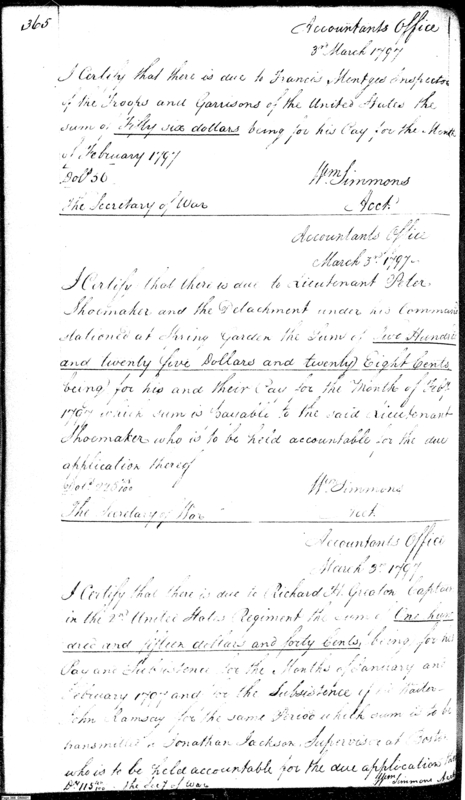 365
Accountants Office
3d March 1797
I Certify that there is due to Francis Mentges Inspector
of the Troops and Garrisons of the United States the
sum of Fifty six dollars being for his Pay for the Month
of February 1797
Dols 56
Wm Simmons
The Secretary of War
Acct
Accountants Office
March 3d 1797
I Certify that there is due to Lieutenant Peter
Shoemaker and the Detachment under his Command
stationed at Garden the Sum of Hundred
and twenty five Dollars and twenty Eight Cents
being for his and their Pay for the Month of Feby
1797 which sum is payable to the said Lieutenant
Shoemaker who is to be held accountable for the due
application thereof
Wm Simmons
The Secretary of War
Acct
Accountants Office
March 3d 1797
I Certify that there is due to Richard H. Greaton Captain
in the 2nd United States Regiment the sum of One hun
dred and fifteen dollars and forty Cents, being for his
Pay and Subsistence for the Months of January and
February 1797 and for the Subsistence of
John Ramsay for the same Period which sum is to be
transmitted to Jonathan Jackson, Supervisor at Boston
who is to be held accountable for the due application
Wm Simmons Acct
the Secy of War